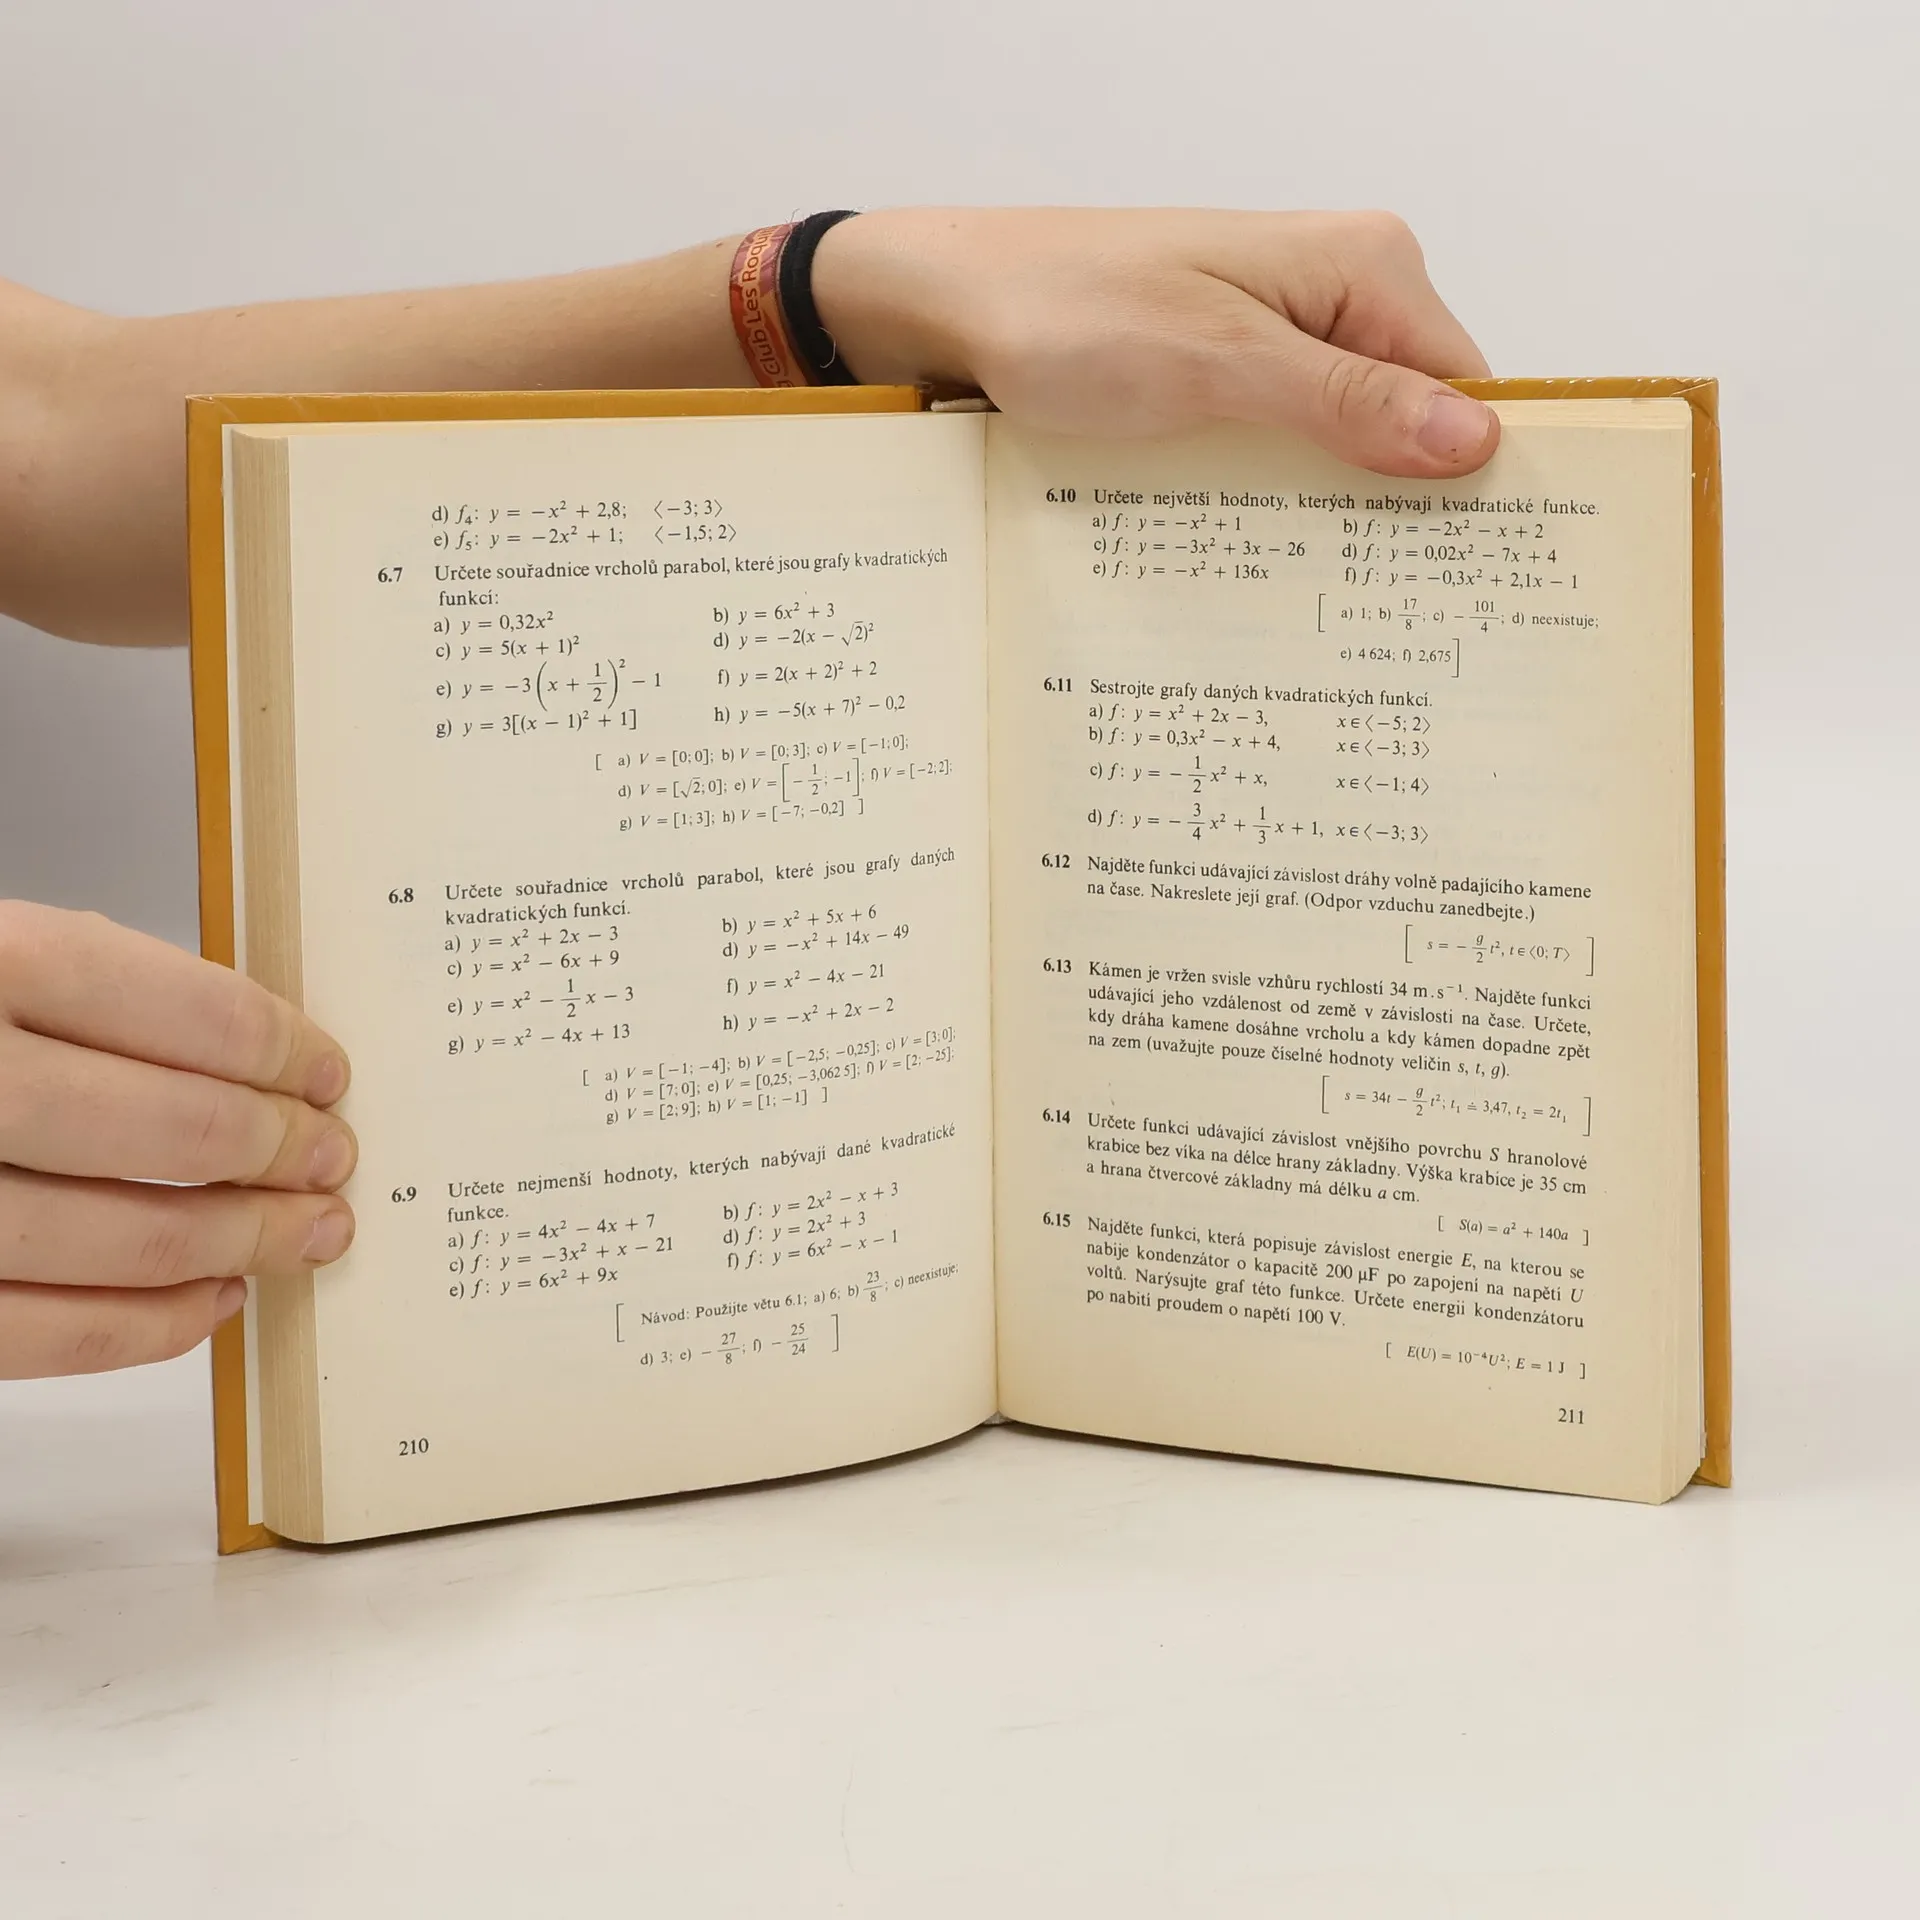 Club Les Roqu
d) f₄: y = −x² + 2,8; ⟨−3; 3⟩
e) f₅: y = −2x² + 1; ⟨−1,5; 2⟩
6.7 Určete souřadnice vrcholů parabol, které jsou grafy kvadratických
funkcí:
a) y = 0,32x² b) y = 6x² + 3
c) y = 5(x + 1)² d) y = −2(x − √2)²
e) y = −3(x + 1/2)² − 1 f) y = 2(x + 2)² + 2
g) y = 3[(x − 1)² + 1] h) y = −5(x + 7)² − 0,2
[ a) V = [0; 0]; b) V = [0; 3]; c) V = [−1; 0];
d) V = [√2; 0]; e) V = [−1/2; −1]; f) V = [−2; 2];
g) V = [1; 3]; h) V = [−7; −0,2] ]
6.8 Určete souřadnice vrcholů parabol, které jsou grafy daných
kvadratických funkcí.
a) y = x² + 2x − 3 b) y = x² + 5x + 6
c) y = x² − 6x + 9 d) y = −x² + 14x − 49
e) y = x² − 1/2 x − 3 f) y = x² − 4x − 21
g) y = x² − 4x + 13 h) y = −x² + 2x − 2
[ a) V = [−1; −4]; b) V = [−2,5; −0,25]; c) V = [3; 0];
d) V = [7; 0]; e) V = [0,25; −3,062 5]; f) V = [2; −25];
g) V = [2; 9]; h) V = [1; −1] ]
6.9 Určete nejmenší hodnoty, kterých nabývají dané kvadratické
funkce.
a) f: y = 4x² − 4x + 7 b) f: y = 2x² − x + 3
c) f: y = −3x² + x − 21 d) f: y = 2x² + 3
e) f: y = 6x² + 9x f) f: y = 6x² − x − 1
[ Návod: Použijte větu 6.1; a) 6; b) 23/8; c) neexistuje;
d) 3; e) −27/8; f) −25/24 ]
210
6.10 Určete největší hodnoty, kterých nabývají kvadratické funkce.
a) f: y = −x² + 1 b) f: y = −2x² − x + 2
c) f: y = −3x² + 3x − 26 d) f: y = 0,02x² − 7x + 4
e) f: y = −x² + 136x f) f: y = −0,3x² + 2,1x − 1
[ a) 1; b) 17/8; c) −101/4; d) neexistuje;
e) 4 624; f) 2,675 ]
6.11 Sestrojte grafy daných kvadratických funkcí.
a) f: y = x² + 2x − 3, x∈⟨−5; 2⟩
b) f: y = 0,3x² − x + 4, x∈⟨−3; 3⟩
c) f: y = −1/2 x² + x, x∈⟨−1; 4⟩
d) f: y = −3/4 x² + 1/3 x + 1, x∈⟨−3; 3⟩
6.12 Najděte funkci udávající závislost dráhy volně padajícího kamene
na čase. Nakreslete její graf. (Odpor vzduchu zanedbejte.)
[ s = −g/2 t², t∈⟨0; T⟩ ]
6.13 Kámen je vržen svisle vzhůru rychlostí 34 m.s⁻¹. Najděte funkci
udávající jeho vzdálenost od země v závislosti na čase. Určete,
kdy dráha kamene dosáhne vrcholu a kdy kámen dopadne zpět
na zem (uvažujte pouze číselné hodnoty veličin s, t, g).
[ s = 34t − g/2 t²; t₁ ≐ 3,47, t₂ = 2t₁ ]
6.14 Určete funkci udávající závislost vnějšího povrchu S hranolové
krabice bez víka na délce hrany základny. Výška krabice je 35 cm
a hrana čtvercové základny má délku a cm.
[ S(a) = a² + 140a ]
6.15 Najděte funkci, která popisuje závislost energie E, na kterou se
nabije kondenzátor o kapacitě 200 μF po zapojení na napětí U
voltů. Narýsujte graf této funkce. Určete energii kondenzátoru
po nabití proudem o napětí 100 V.
[ E(U) = 10⁻⁴U²; E = 1 J ]
211